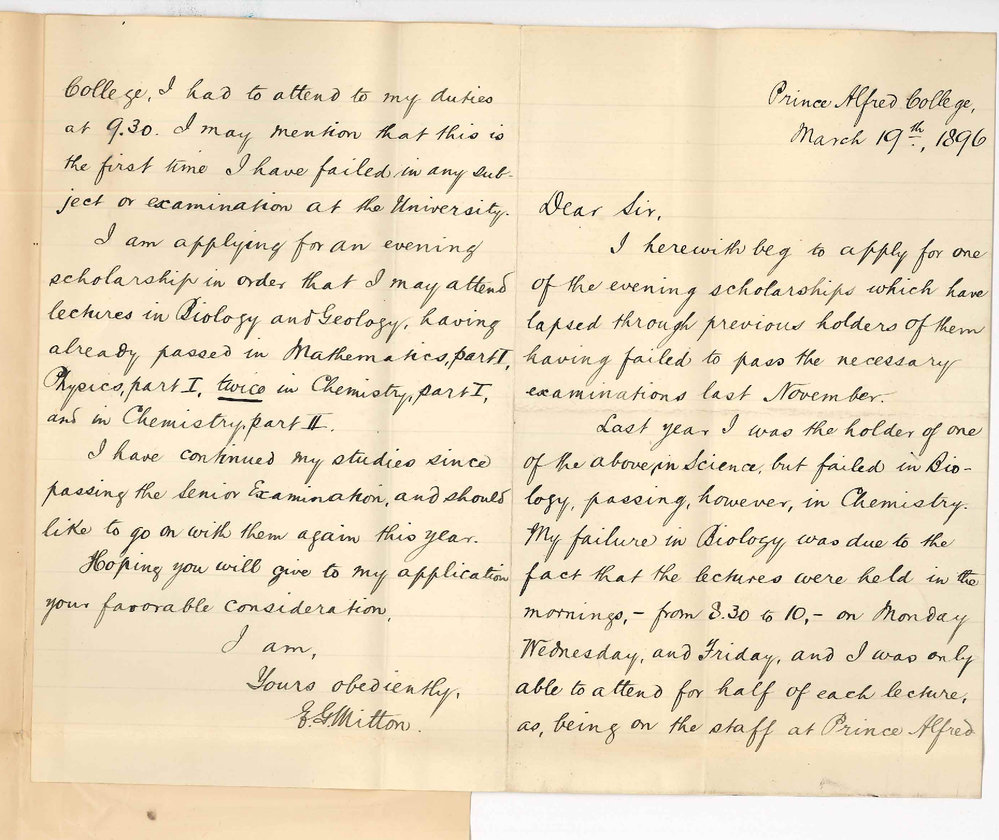 Prince Alfred College,
March 19th, 1896
Dear Sir,
I herewith beg to apply for one
of the evening scholarships which have
lapsed through previous holders of them
having failed to pass the necessary
examinations last November.
Last year I was the holder of one
of the above, in Science, but failed in Bio-
logy, passing, however, in Chemistry.
My failure in Biology was due to the
fact that the lectures were held in the
mornings, – from 8.30 to 10, – on Monday
Wednesday, and Friday, and I was only
able to attend for half of each lecture,
as, being on the staff at Prince Alfred
College, I had to attend to my duties
at 9.30. I may mention that this is
the first time I have failed in any sub-
ject or examination at the University.
I am applying for an evening
scholarship in order that I may attend
lectures in Biology and Geology, having
already passed in Mathematics, part I,
Physics, part I, twice in Chemistry, part I,
and in Chemistry, part II.
I have continued my studies since
passing the Senior Examination, and should
like to go on with them again this year.
Hoping you will give to my application
your favorable consideration,
I am,
Yours obediently,
E. G. Mitton.